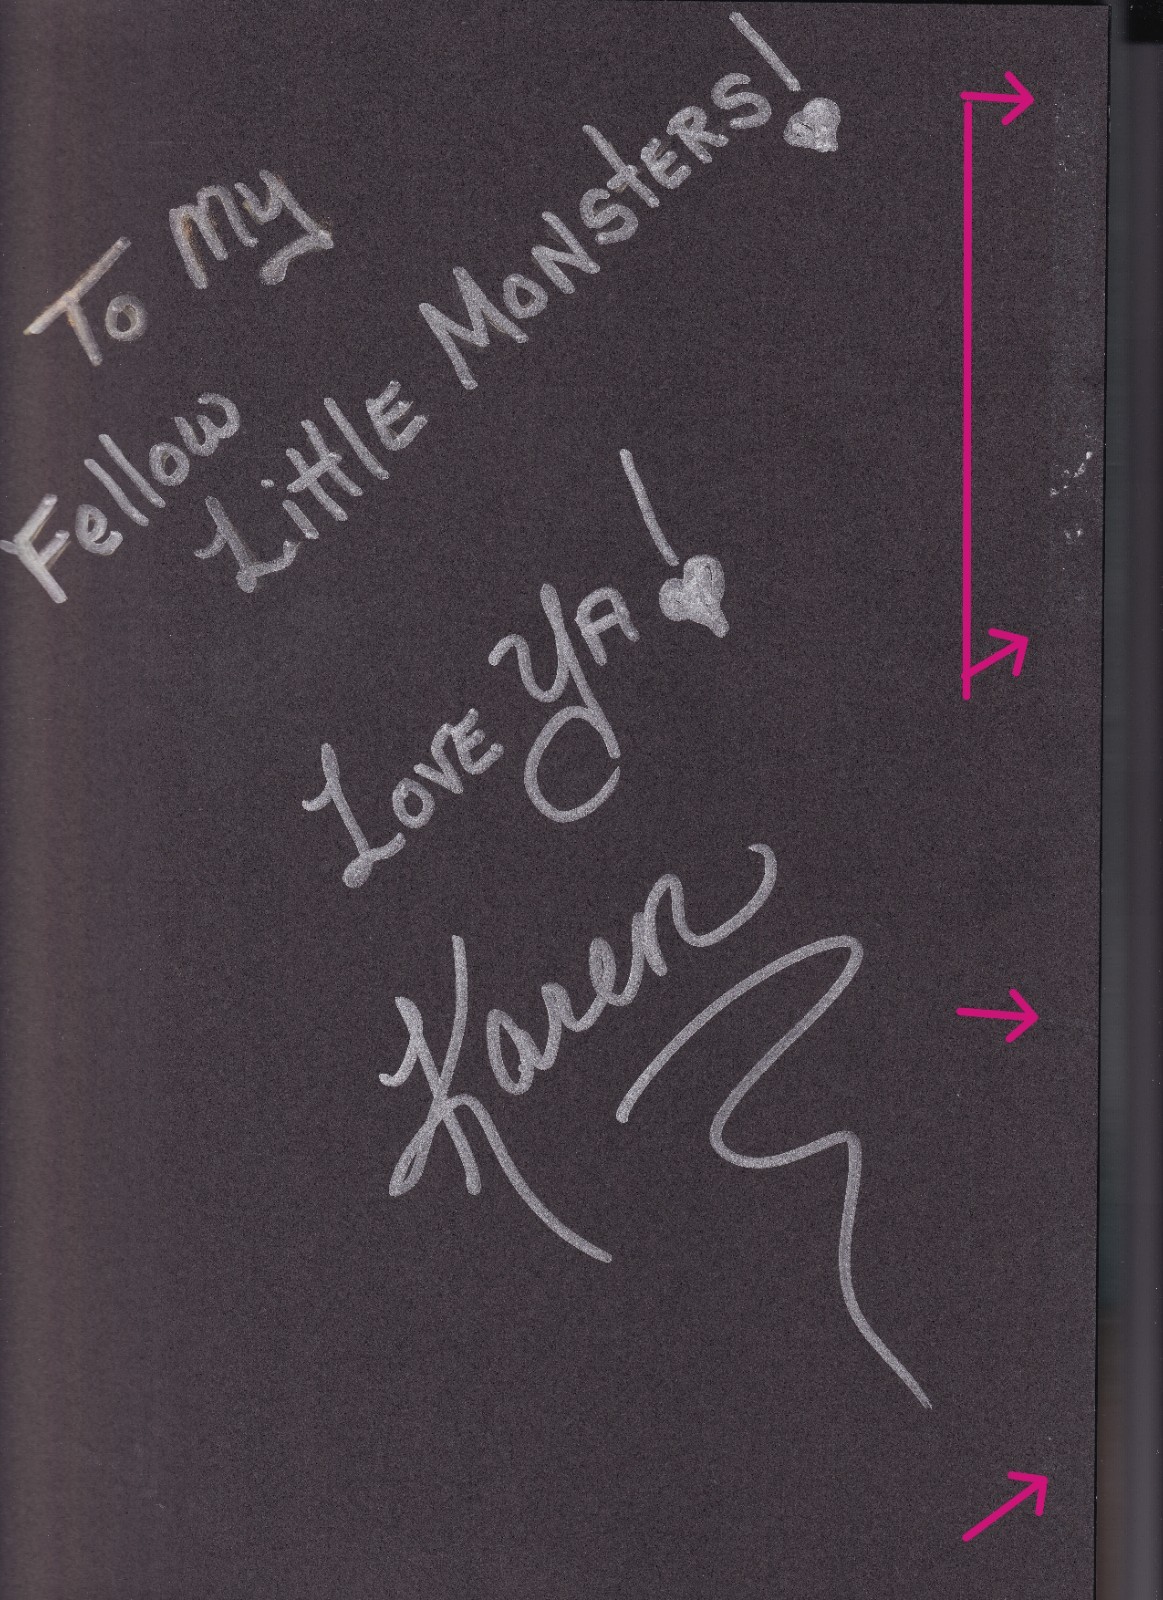 To My
Fellow
Little Monsters!
Love Ya!
Karen